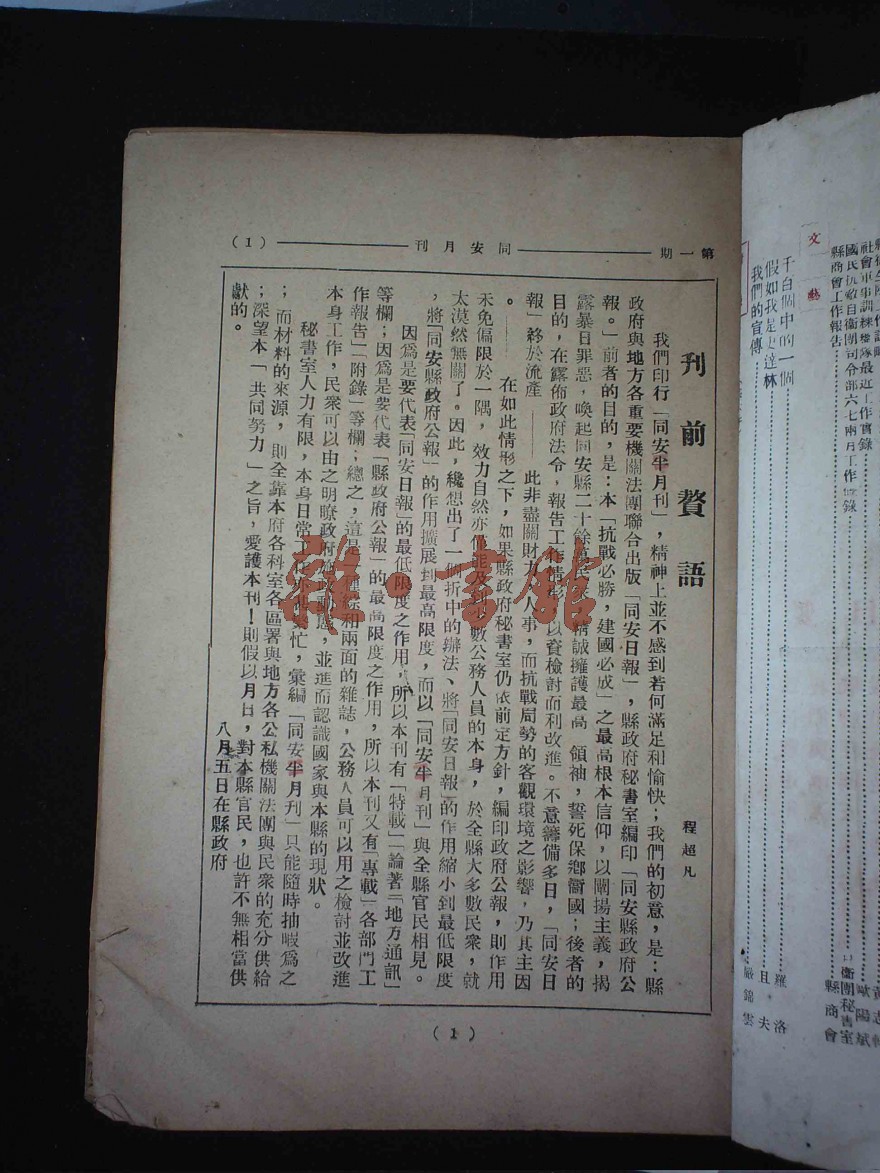 第一期 同安月刊 (1)
刊前贅語
程超凡
我們印行「同安半月刊」，精神上並不感到若何滿足和愉快；我們的初意，是：縣
政府與地方各重要機關法團聯合出版「同安日報」，縣政府秘書室編印「同安縣政府公
報。」前者的目的，是：本「抗戰必勝，建國必成」之最高根本信仰，以闡揚主義，揭
露暴日罪惡，喚起同安縣二十餘萬民眾，精誠擁護最高 領袖，誓死保鄉衞國；後者的
目的，在露佈政府法令，報告工作情形，以資檢討而利改進。不意籌備多日，「同安日
報」終於流產——此非盡關財力人事，而抗戰局勢的客觀環境之影響，乃其主因
。——在如此情形之下，如果縣政府秘書室仍依前定方針，編印政府公報，則作用
未免偏限於一隅，效力自然亦僅能及到少數公務人員的本身，於全縣大多數民衆，就
太漠然無關了。因此，纔想出了一個折中的辦法、將「同安日報」的作用縮小到最低限度
，將「同安縣政府公報」的作用擴展到最高限度，而以「同安半月刊」與全縣官民相見。
因爲是要代表「同安日報」的最低限度之作用，所以本刊有「特載」「論著」「地方通訊」
等欄；因爲是要代表「縣政府公報」的最高限度之作用，所以本刊又有「專載」「各部門工
作報告」「附錄」等欄；總之，這是一種綜和兩面的雜誌，公務人員可以用之檢討並改進
本身工作，民衆可以由之明瞭政府施政動態，並進而認識國家與本縣的現狀。
秘書室人力有限，本身日常工作亦極繁忙，彙編「同安半月刊」只能隨時抽暇爲之
；而材料的來源，則全靠本府各科室各區署與地方各公私機關法團與民衆的充分供給
；深望本「共同努力」之旨，愛護本刊！則假以月日，對本縣官民，也許不無相當供
獻的。
八月五日在縣政府
(1)
社會軍事訓練總隊最近工作實錄
國民抗敵自衞團司令部六七兩月工作實錄 自衞團秘書室
縣商會工作報告 縣商會
文藝
千百個中的一個 羅洛
假如我是史達林 且夫
我們的宣傳 嚴錦雲
雜·書館